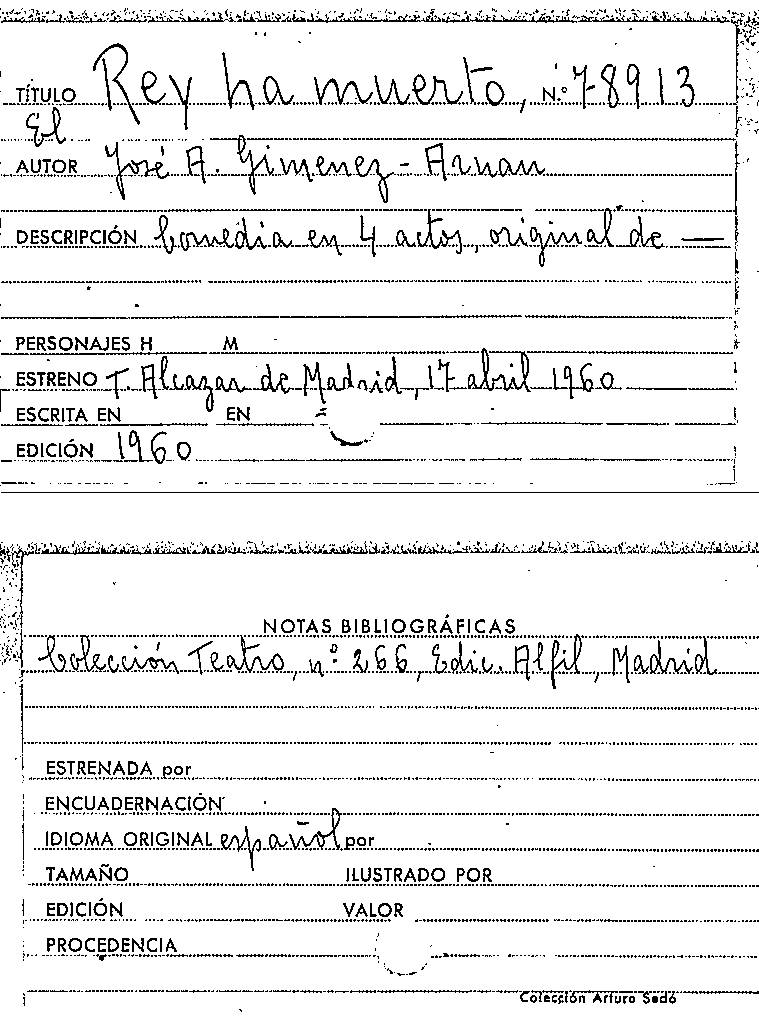 TÍTULO Rey ha muerto, N.º 78913
El
AUTOR José A. Gimenez-Arnau
DESCRIPCIÓN Comedia en 4 actos, original de —
PERSONAJES H M
ESTRENO T. Alcazar de Madrid, 17 abril 1960
ESCRITA EN EN
EDICIÓN 1960
NOTAS BIBLIOGRÁFICAS
Colección Teatro, nº 266, Edic. Alfil, Madrid
ESTRENADA por
ENCUADERNACIÓN
IDIOMA ORIGINAL español por
TAMAÑO ILUSTRADO POR
EDICIÓN VALOR
PROCEDENCIA
Colección Arturo Sedó